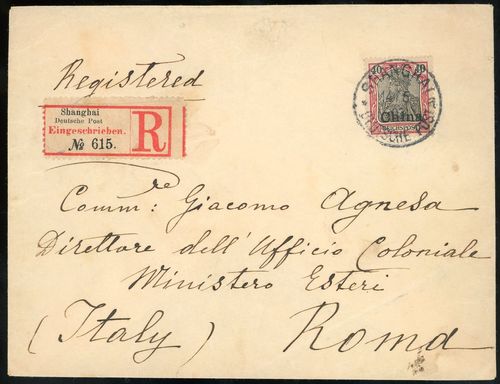 Registered
Shanghai
Deutsche Post
Eingeschrieben.
R
№ 615.
SHANGHAI
DEUTSCHE POST
China
REICHSPOST
Comm:re Giacomo Agnesa
Direttore dell'Ufficio Coloniale
Ministero Esteri
(Italy) Roma